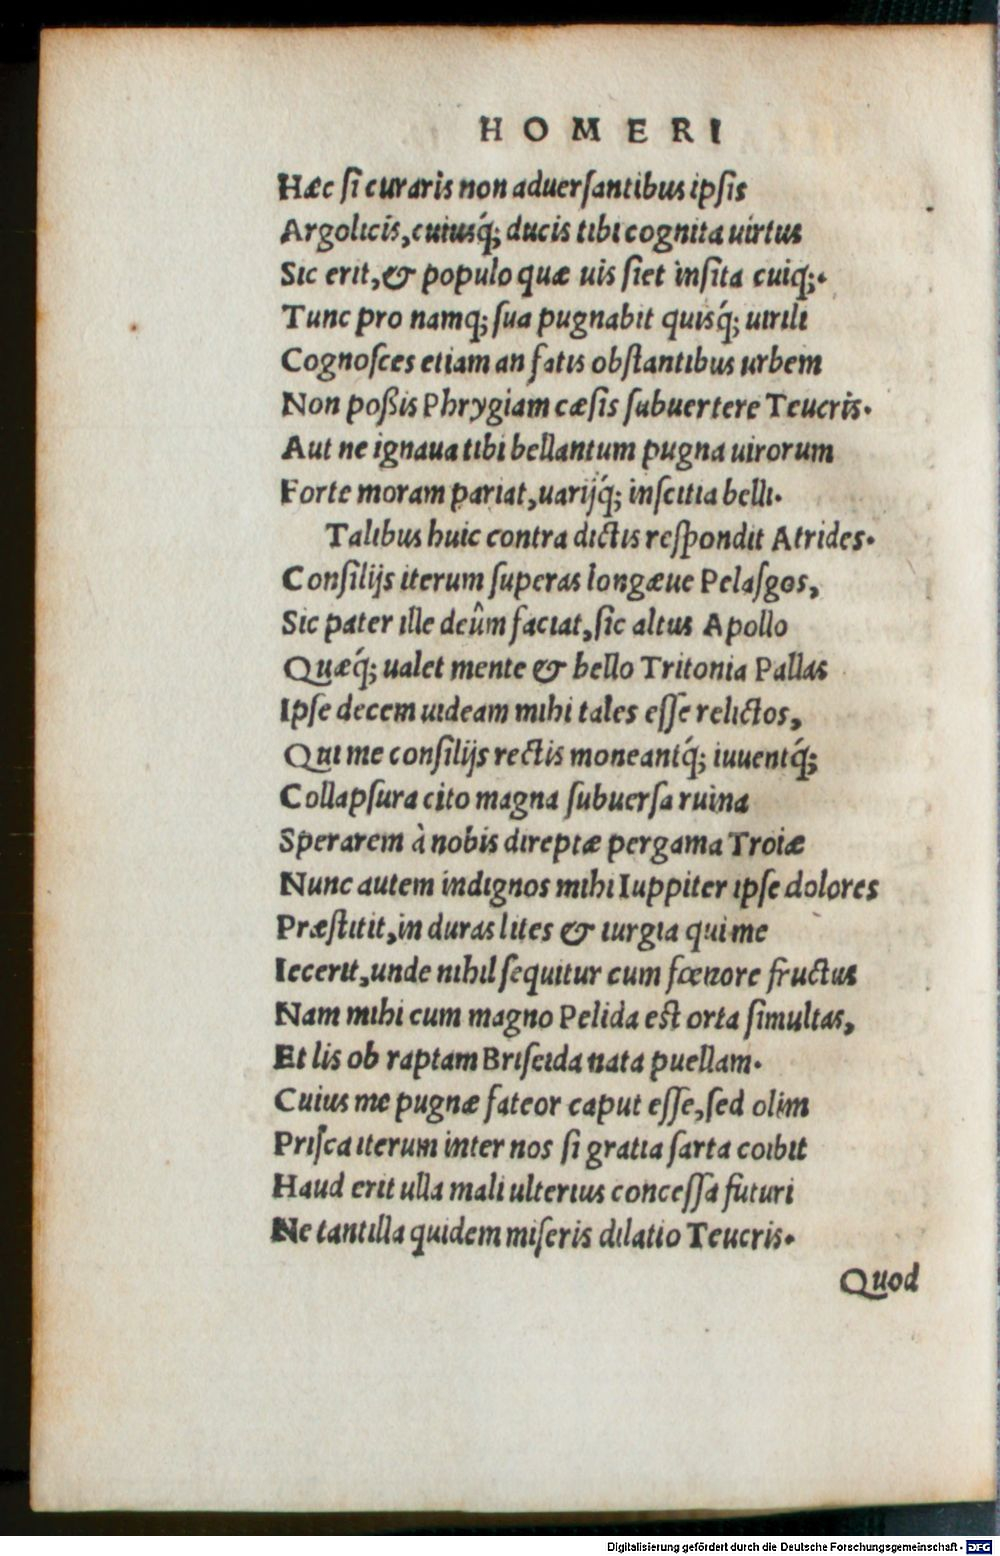 HOMERI
Hæc ſi curaris non aduerſantibus ipſis
Argolicis, cuiusq́; ducis tibi cognita uirtus
Sic erit, & populo quæ uis ſiet inſita cuiq;.
Tunc pro namq; ſua pugnabit quisq́; uirili
Cognoſces etiam an fatis obſtantibus urbem
Non poßis Phrygiam cæſis ſubuertere Teucris.
Aut ne ignaua tibi bellantum pugna uirorum
Forte moram pariat, uarijq́; inſcitia belli.
Talibus huic contra dictis reſpondit Atrides.
Conſilijs iterum ſuperas longæue Pelaſgos,
Sic pater ille deûm faciat, ſic altus Apollo
Quæq́; ualet mente & bello Tritonia Pallas
Ipſe decem uideam mihi tales eſſe relictos,
Qui me conſilijs rectis moneantq́; iuuentq́;
Collapſura cito magna ſubuerſa ruina
Sperarem à nobis direptæ pergama Troiæ
Nunc autem indignos mihi Iuppiter ipſe dolores
Præſtitit, in duras lites & iurgia qui me
Iecerit, unde nihil ſequitur cum fœnore fructus
Nam mihi cum magno Pelida eſt orta ſimultas,
Et lis ob raptam Briſeida nata puellam.
Cuius me pugnæ fateor caput eſſe, ſed olim
Priſca iterum inter nos ſi gratia ſarta coibit
Haud erit ulla mali ulterius conceſſa futuri
Ne tantilla quidem miſeris dilatio Teucris.
Quod
Digitalisierung gefördert durch die Deutsche Forschungsgemeinschaft - DFG